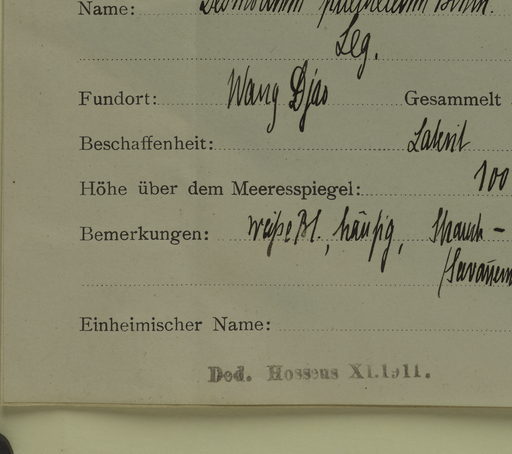 Name: Desmodium
Leg.
Fundort: Wang Djao Gesammelt
Beschaffenheit: Laterit
Höhe über dem Meeresspiegel: 100
Bemerkungen: weiße Bl., häufig, Strauch-
Einheimischer Name:
Ded. Hosseus XI.1911.